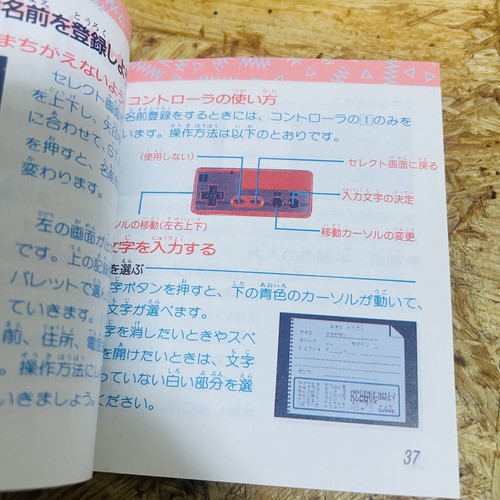 名前を登録しよ
まちがえないよ
セレクト画面
を上下し、矢印
に合わせて、
を押すと、名前
変わります。
左の画面が
です。上の記
パレットで選
ていきます。
前、住所、電
。操作方法に
いきましょう。
コントローラの使い方
名前登録をするときには、コントローラのⅠのみを
います。操作方法は以下のとおりです。
(使用しない)
セレクト画面に戻る
入力文字の決定
ソルの移動(左右上下)
移動カーソルの変更
文字を入力する
を選ぶ
字ボタンを押すと、下の青色のカーソルが動いて、
文字が選べます。
字を消したいときやスペ
を開けたいときは、文字
っていない白い部分を選
ください。
37